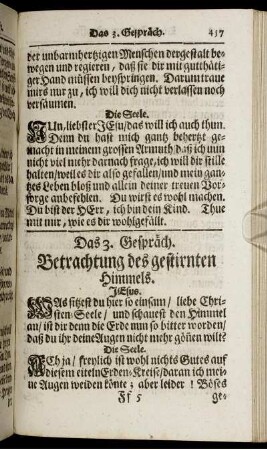 Das 3. Gespräch. 457
der unbarmhertzigen Menschen dergestalt be-
wegen und regieren / daß sie dir mit gutthäti-
ger Hand müssen beyspringen. Darum traue
mirs nur zu / ich will dich nicht verlassen noch
versäumen.
Die Seele.
NUn, liebster JEsu / das will ich auch thun.
Denn du hast mich gantz behertzt ge-
macht in meinem grossen Armuth / daß ich nun
nicht viel mehr darnach frage, ich will dir stille
halten / weil es dir also gefallen / und mein gan-
tzes Leben bloß und allein deiner treuen Vor-
sorge anbefehlen. Du wirst es wohl machen.
Du bist der HErr, ich bin dein Kind. Thue
mit nur, wie es dir wohlgefällt.
Das 3. Gespräch.
Betrachtung des gestirnten
Himmels.
JEsus.
WAs sitzest du hier so einsam / liebe Chri-
sten-Seele / und schauest den Himmel
an / ist dir denn die Erde nun so bitter worden /
daß du ihr deine Augen nicht mehr gönnen wilt?
Die Seele.
ACh ja / freylich ist wohl nichts Gutes auf
diesem eiteln Erden-Kreise / daran ich mei-
ne Augen weiden könte; aber leider! Böses
Ff 5 ge-